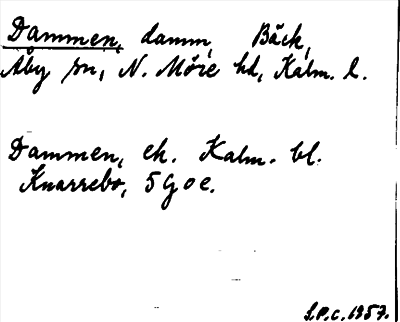 Dammen, damm, Bäck,
Åby sn, N. Möre hd, Kalm. l.
Dammen, ek. Kalm. bl.
Knarrebo, 5G0e.
S.P.C. 1957.